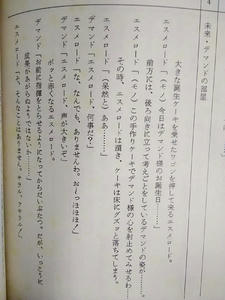 4
未来・デマンドの部屋
大きな誕生ケーキを乗せたワゴンを押して来るエスメロード。
エスメロード「（モノ）今日はデマンド様のお誕生日……」
前方には、後ろ向きに立って考えごとをしているデマンドの姿が……。
エスメロード「（モノ）この手作りケーキでデマンド様の心を射止めてみせるわ……」
その時、エスメロードは躓き、ケーキは床にグズッと落ちてしまう。
エスメロード「（呆然と）ああ……！」
デマンド「エスメロード、何事だ？」
エスメロード「な、なんでも、ありませんわ。おーっほほほ！」
デマンド「エスメロード、声が大きいぞ」
ポッと赤くなるエスメロード。
デマンド「お前に指揮をとらせるようになってからだいぶたつ。だが、いっこうに
成果があがらぬようではないか……」
エスメロード「そ、そんなことはありません。キラル、アキラル！」